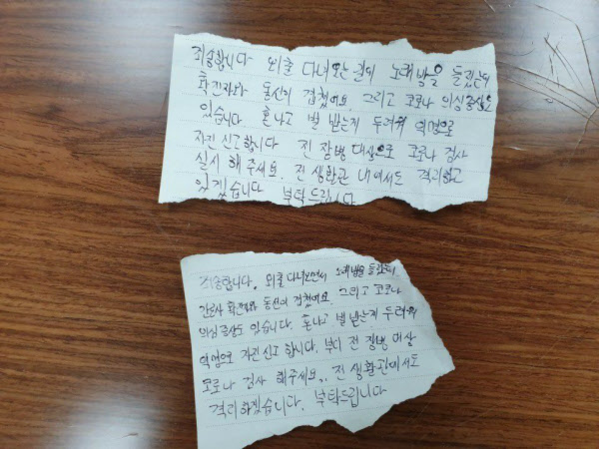 죄송합니다 외출 다녀오는길에 노래방을 들렸는데
확진자와 동선이 겹쳤어요. 그리고 코로나 의심증상도
있습니다 혼나고 벌 받는게 두려워 익명으로
자진 신고합니다 전 장병 대상으로 코로나 검사
실시 해 주세요. 전 생활관 내에서도 격리하고
있겠습니다 부탁드립니다
죄송합니다. 외출 다녀오면서 노래방을 들렸는데
간호사 확진자와 동선이 겹쳤어요. 그리고 코로나
의심증상도 있습니다. 혼나고 벌 받는게 두려워
익명으로 자진 신고 합니다. 부디 전 장병 대상
코로나 검사 해주세요.. 전 생활관에서도
격리하겠습니다. 부탁드립니다